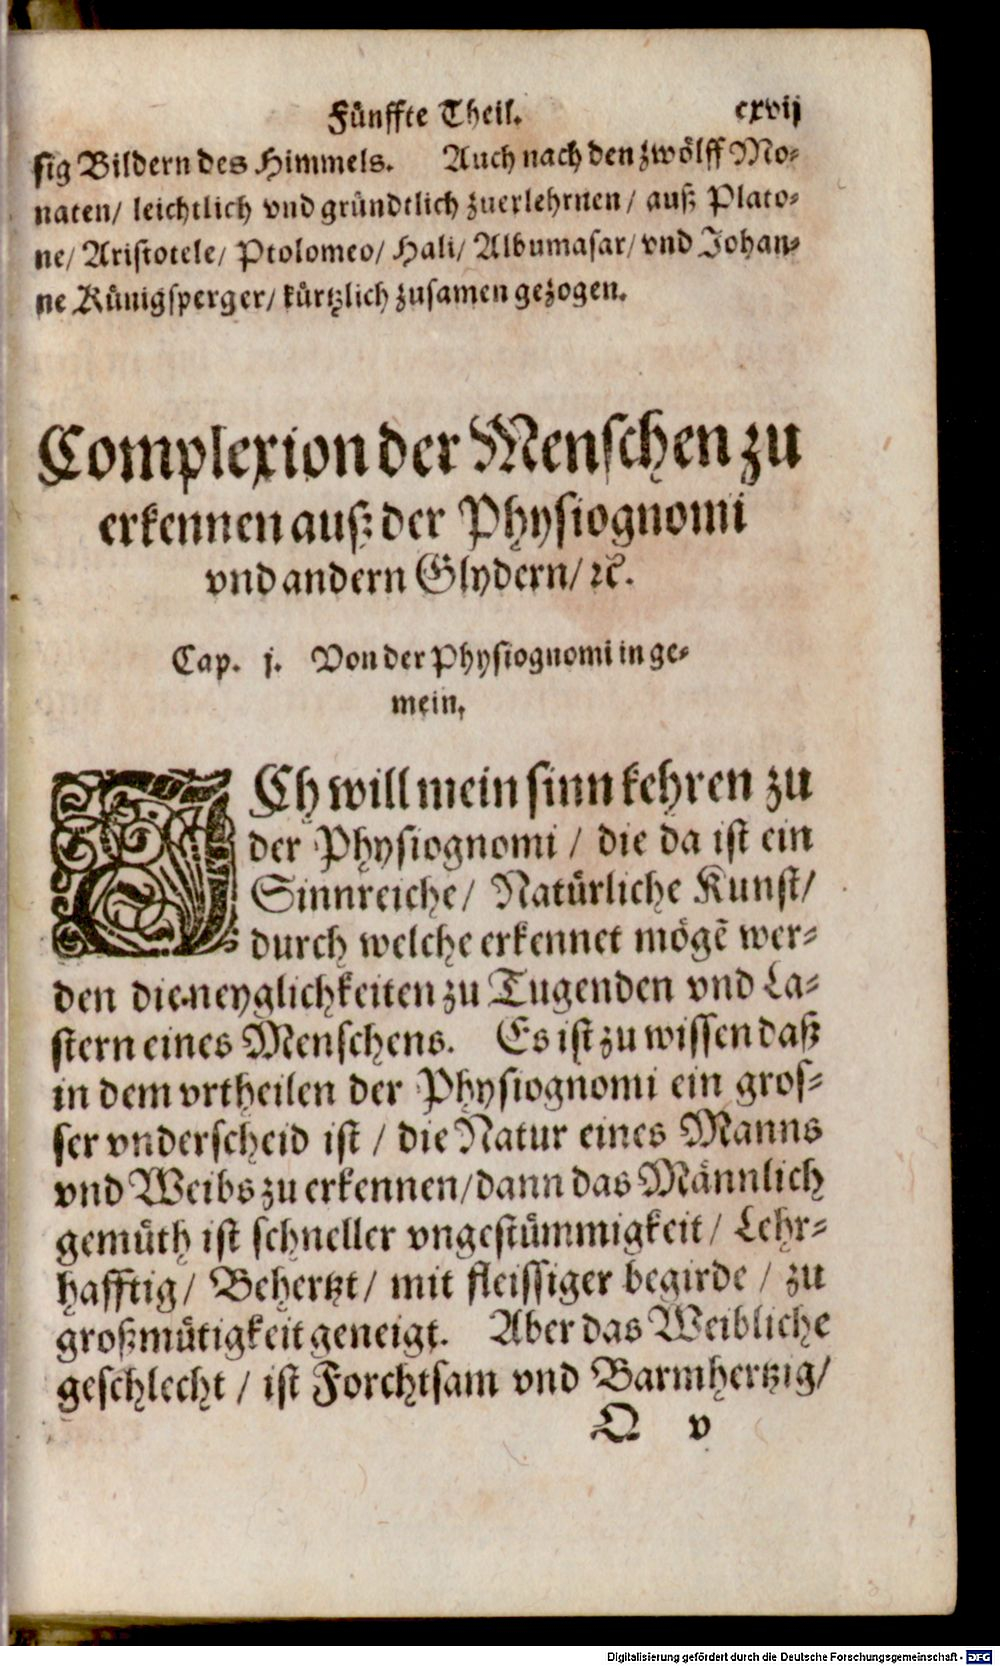 Fünffte Theil. cxvij
sig Bildern des Himmels. Auch nach den zwölff Mo-
naten/ leichtlich vnd gründtlich zuerlehrnen/ auß Plato-
ne/ Aristotele/ Ptolomeo/ Hali/ Albumasar/ vnd Johan-
ne Künigsperger/ kürtzlich zusamen gezogen.
Complexion der Menschen zu
erkennen auß der Physiognomi
vnd andern Glydern/ ꝛc.
Cap. j. Von der Physiognomi in ge-
mein.
ICh will mein sinn kehren zu
der Physiognomi / die da ist ein
Sinnreiche/ Natürliche Kunst/
durch welche erkennet mögẽ wer-
den die neyglichkeiten zu Tugenden vnd La-
stern eines Menschens. Es ist zu wissen daß
in dem vrtheilen der Physiognomi ein gros-
ser vnderscheid ist / die Natur eines Manns
vnd Weibs zu erkennen/ dann das Männlich
gemüth ist schneller vngestümmigkeit/ Lehr-
hafftig/ Behertzt/ mit fleissiger begirde / zu
großmütigkeit geneigt. Aber das Weibliche
geschlecht / ist Forchtsam vnd Barmhertzig/
Q v
Digitalisierung gefördert durch die Deutsche Forschungsgemeinschaft - DFG